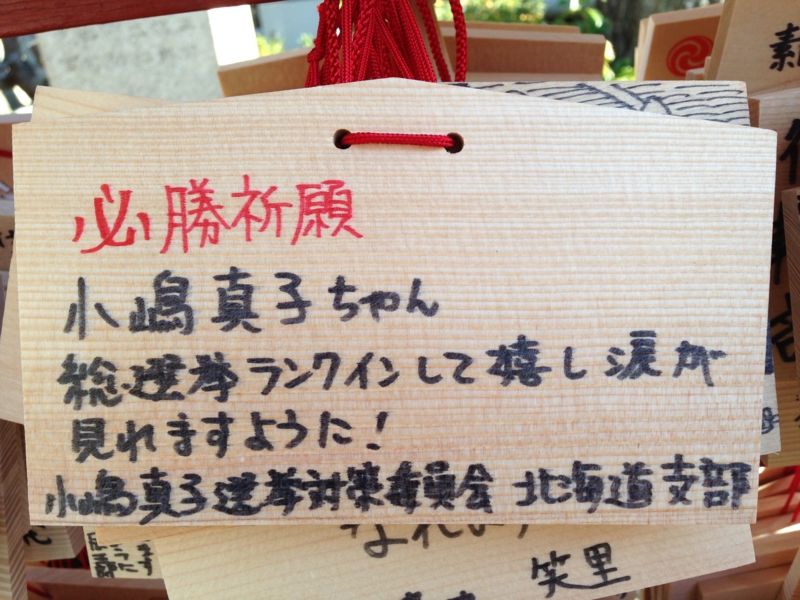 必勝祈願
小嶋真子ちゃん
総選挙ランクインして嬉し涙が
見れますように!
小嶋真子選挙対策委員会 北海道支部
笑里
素